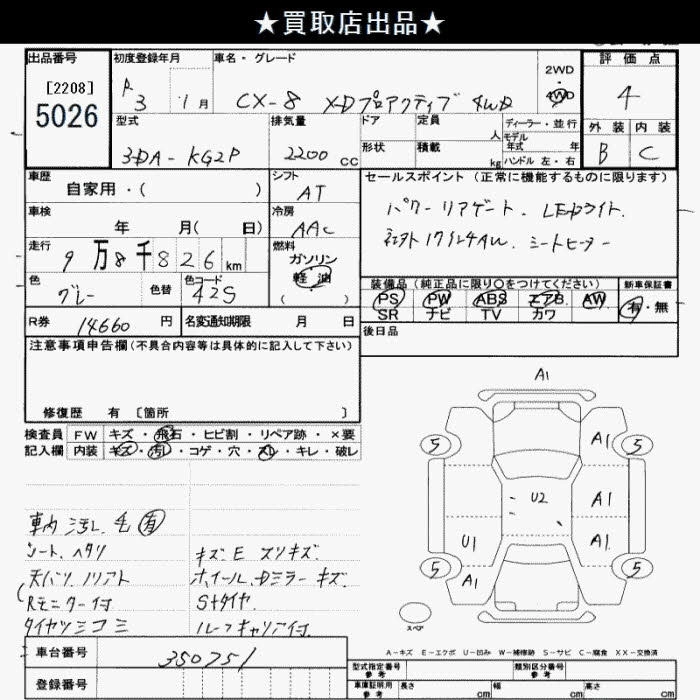 ★買取店出品★
出品番号 初度登録年月 車名・グレード 評価点
[2208] 5026 R 3 1月 CX-8 XDプロアクティブ 4WD 2WD 4WD 4
型式 排気量 ドア 定員 人 ディーラー・並行 外装 内装
3DA-KG2P 2200 CC 形状 積載 kg モデル年式 年 ハンドル 左・右 B C
車歴 自家用・( ) シフト AT セールスポイント(正常に機能するものに限ります)
車検 年 月( 日) 冷房 AAC パワーリアゲート. LEDライト.
走行 9万8千826km 燃料 ガソリン 軽油 ( ) 社外17インチAW. シートヒーター
色 グレー 色替 色コード 42S 装備品(純正品に限り○をつけてください) 新車保証書
PS PW ABS エアB AW 有・無
SR ナビ TV カワ
R券 14660円 名変通知期限 月 日 後日品
注意事項申告欄(不具合内容等は具体的に記入して下さい)
修復歴 有 [箇所 ]
検査員 FW キズ・飛石・ヒビ割・リペア跡・×要
記入欄 内装 キズ・汚レ・コゲ・穴・スレ・キレ・破レ
A1
5 A1 5
U2 A1
U1 A1
5 A1 5
スペア
車内汚レ 毛有
シートヘタリ キズ.E スリキズ.
天バリ ノリアト ホイール.Dミラーキズ.
Rモニター付 Sタイヤ.
タイヤツミコミ ルーフキャリア付.
A-キズ E-エクボ U-凹み W-補修跡 S-サビ C-腐食 XX-交換済
車台番号 350751
登録番号
型式指定番号 参考 類別区分番号 参考
車庫証明用 参考 長さ cm 幅 cm 高さ cm